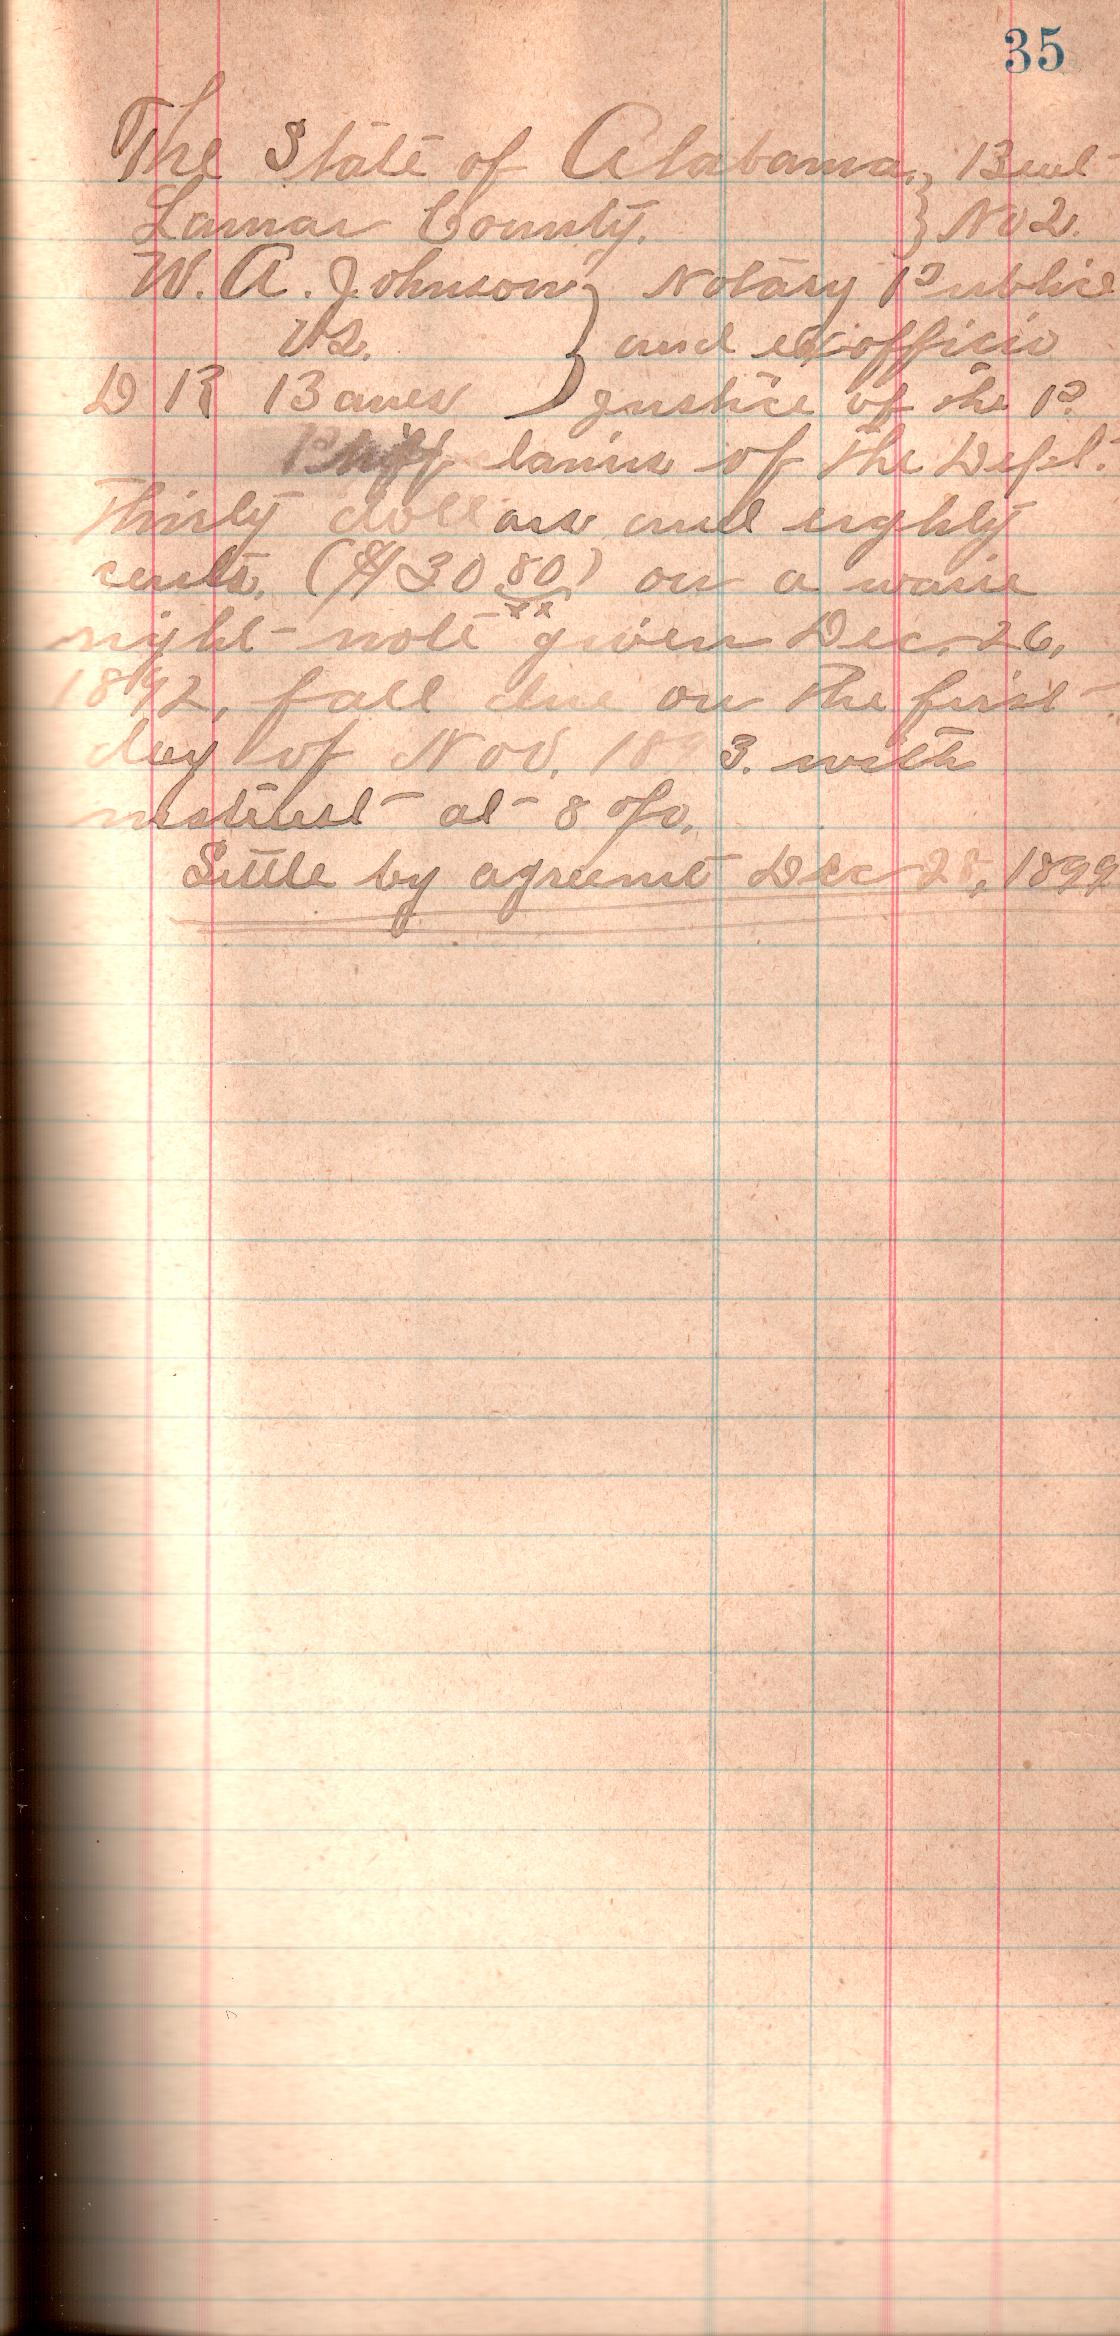 35
The State of Alabama, } Beat
Lamar County. } No 2.
W. A. Johnson } Notary Public
vs. } and exofficio
D R Banes } justice of the P.
Pltiff laims of the Deft.
Thirty dollars and eighty
cents. ($30 80/xx) on a waive
right note given Dec. 26,
1892, fall due on the first
day of Nov. 1893. with
instrest at 8 o/o.
Settle by agreemt Dec 28, 1899